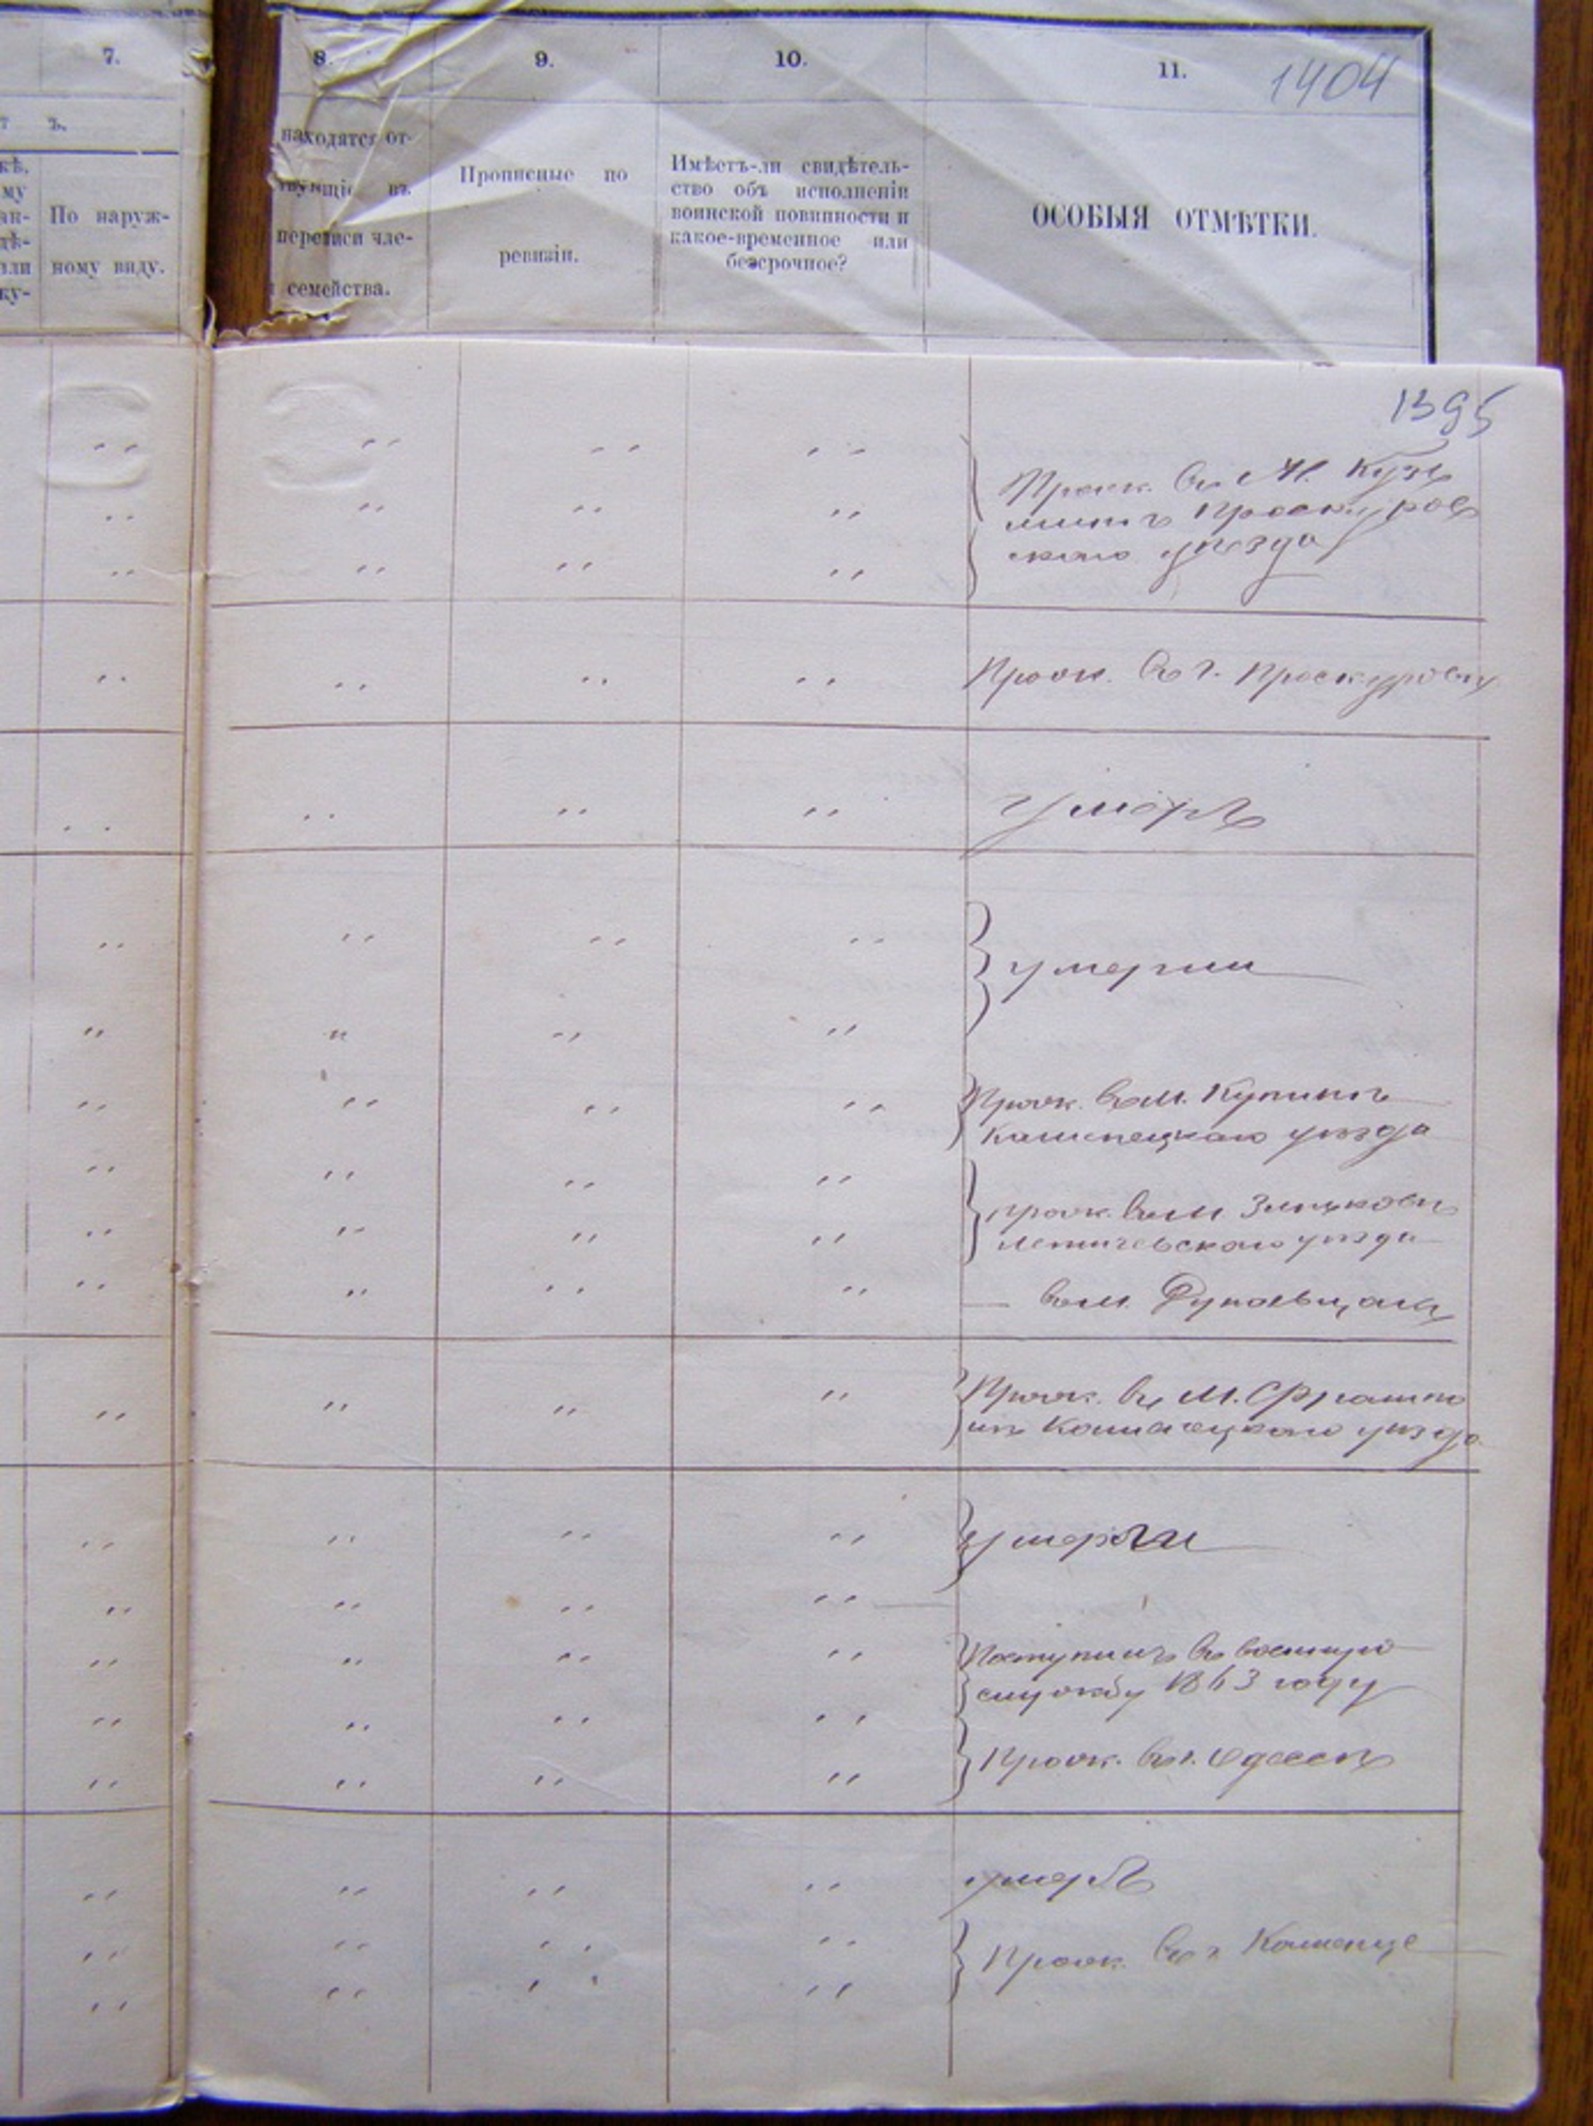 7.
8.
9.
10.
11.
1404
ъ.
По наруж-
ному виду.
находятся от-
въ
переписи чле-
семейства.
Прописные по
ревизіи.
Имѣетъ-ли свидѣтель-
ство объ исполненіи
воинской повинности и
какое-временное или
безсрочное?
ОСОБЫЯ ОТМѢТКИ.
1395
Прож. въ М. Кузь
минѣ Проскуров
скаго уѣзда
Прож. въ г. Проскуровѣ
Умеръ
умерши
Прож. въ м. Купинѣ
Каменецкаго уѣзда
прож. въ м. Зиньковѣ
Летичевскаго уѣзда
— въ м. Дунаевцахъ
Прож. въ М. Фрампо
лѣ Каменецкаго уѣзда
умерли
Поступилъ въ военную
службу году
Прож. въ г. Одессѣ
умеръ
Прож. въ г. Каменце